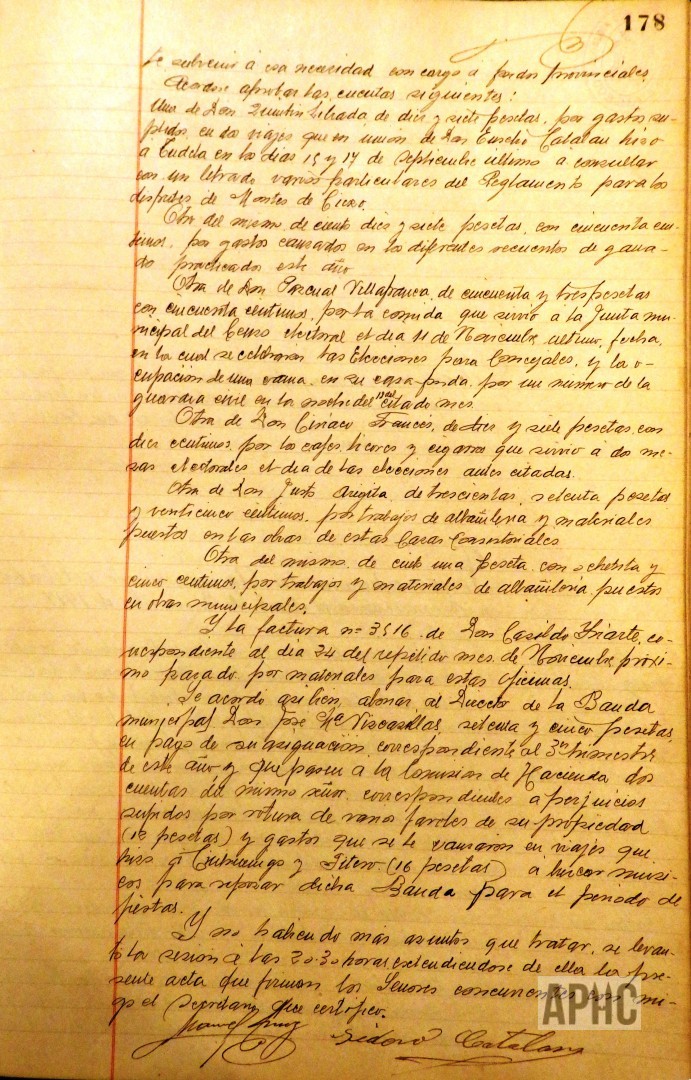 178
se subvenir á esa necesidad con cargo á fondos provinciales.
Acordose aprobar las cuentas siguientes:
Una de Don Quintin de diez y siete pesetas, por gastos su-
plidos, en dos viajes que en unión de Don Eusebio Catalan hizo
a Tudela en los dias 15 y 17 de Septiembre ultimo a consultar
con un letrado varios particulares del Reglamento para los
disfrutes de Montes de Cierzo.
Otra del mismo de ciento diez y siete pesetas, con cincuenta cen-
timos, por gastos causados en los diferentes recuentos de gana-
do practicados este año
Otra de Don Pascual Villafranca, de cincuenta y tres pesetas
con cincuenta centimos, por la comida que sirvió a la Junta mu-
nicipal del Censo electoral el dia 11 de Noviembre ultimo, fecha,
en la cual se celebraron las Elecciones para Concejales, y la o-
cupación de una cama en su casa-fonda, por un numero de la
guardia civil en la noche del citado mes.
Otra de Don Ciriaco Francés, de diez y siete pesetas, con
diez centimos, por los cafes, licores y cigarros que sirvió a dos me-
sas electorales el dia de las elecciones antes citadas.
Otra de Don Justo Arigita, de trescientas setenta pesetas
y venticinco centimos, por trabajos de albañileria y materiales
puestos en las obras de estas Casas Consistoriales
Otra del mismo, de ciento una peseta, con ochenta y
cinco centimos, por trabajos y materiales de albañileria, puestos
en obras municipales.
Y la factura nº 3516 de Don Casildo Iriarte, co-
rrespondiente al dia 24 del repetido mes de Noviembre próxi-
mo pasado por materiales para estas oficinas.
Se acordó asi bien, abonar, al Director de la Banda
municipal Don José Mª Viscasillas, setenta y cinco pesetas,
en pago de su asignación, correspondiente al 3er trimestre
de este año y que pasen a la Comision de Hacienda dos
cuentas del mismo señor correspondientes a perjuicios
sufridos por rotura de varios faroles de su propiedad
(18 pesetas) y gastos que se le causaron en viajes que
hizo á Cintruenigo y Fitero (16 pesetas) a buscar musi-
cos para reforzar dicha Banda para el periodo de
fiestas.
Y no habiendo más asuntos que tratar, se levan-
tó la sesión á las 20.30 horas, extendiendose de ella la pre-
sente acta que firman los Señores concurrentes con mi-
go el Secretario que certifico.
Isidoro Catalan
APHC